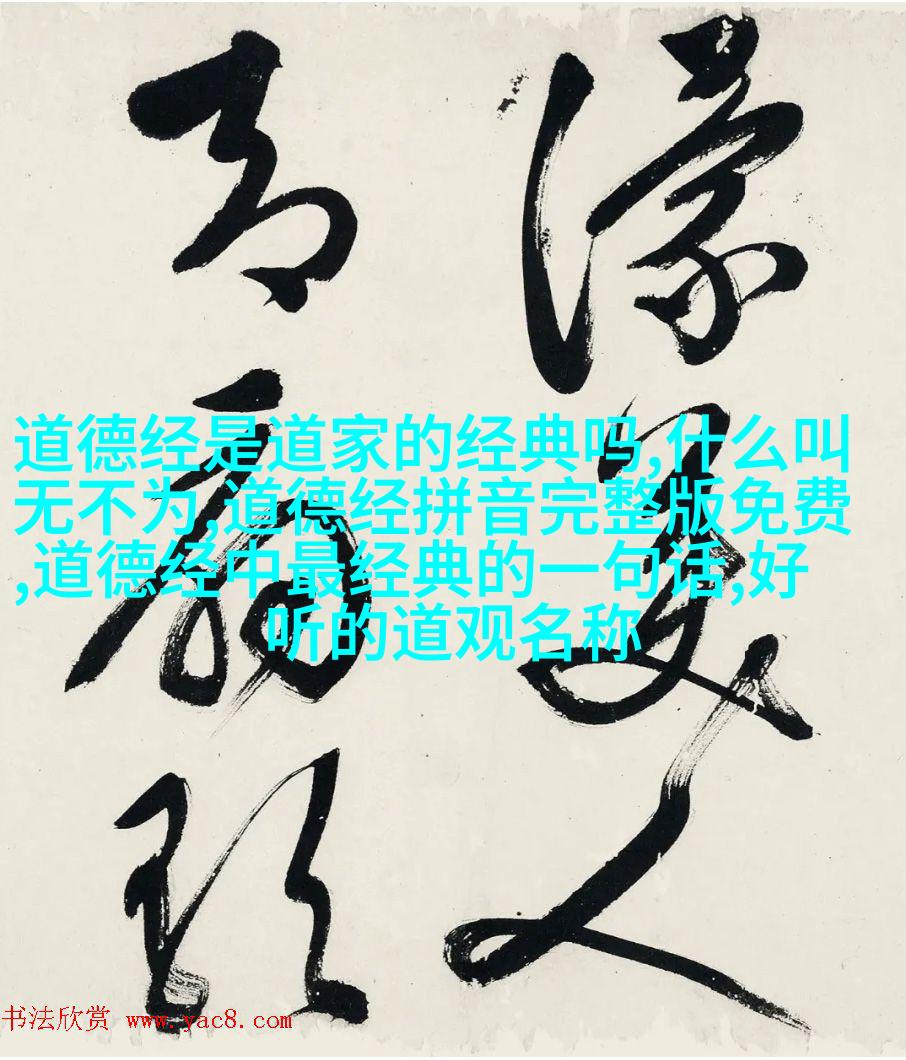 濛美人
道德经是道家的经典吗,什么叫
无不为,道德经拼音完整版免费
,道德经中最经典的一句话,好
听的道观名称
书法欣赏 www.yac8.com